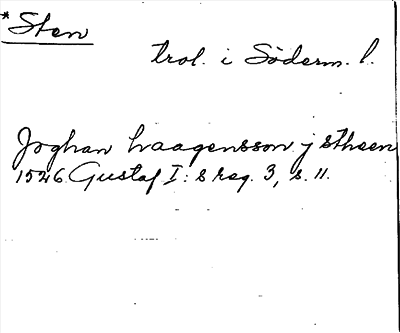 *Sten
trol. i Söderm. l.
Joghan haagensson j stheen
1526 Gustaf I:s reg. 3, s. 11.